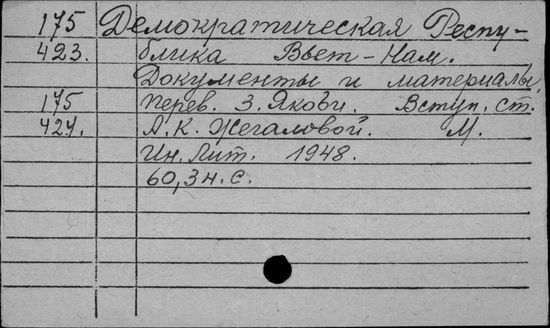 175 Демократическая Респу-
423. блика Вьет-Нам.
Документы и материалы.
175 Перев. З. Якоби. Вступ. ст.
424. А. К. Жегаловой. М.
Ин. Лит. 1948.
60, 3н. с.